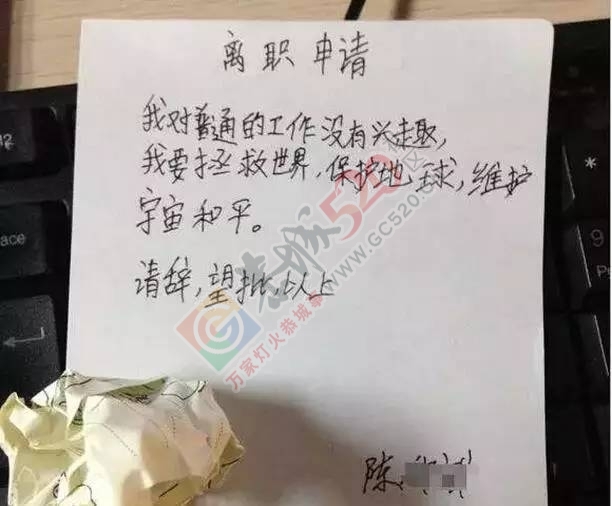 离职申请
我对普通的工作没有兴趣,
我要拯救世界,保护地球,维护
宇宙和平。
请辞,望批,以上
陈
恭城520社区
www.GC520.com
万家灯火恭城事
9